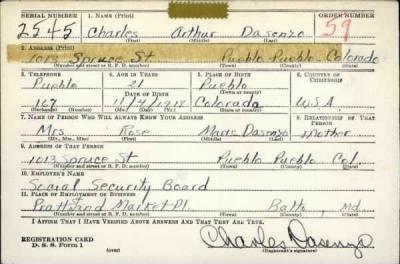 SERIAL NUMBER 1. NAME (Print) ORDER NUMBER
2545 Charles Arthur Dasenzo 59
(First) (Middle) (Last)
2. ADDRESS (Print)
1013 Spruce St Pueblo Pueblo Colorado
(Number and street or R. F. D. number) (Town) (County) (State)
3. TELEPHONE 4. AGE IN YEARS 5. PLACE OF BIRTH 6. COUNTRY OF CITIZENSHIP
Pueblo 21 Pueblo
DATE OF BIRTH
167 11/4/1918 Colorado U.S.A.
7. NAME OF PERSON WHO WILL ALWAYS KNOW YOUR ADDRESS 8. RELATIONSHIP OF THAT PERSON
Mrs. Rose Marie Dasenzo Mother
(Mr., Mrs., Miss) (First) (Middle) (Last)
9. ADDRESS OF THAT PERSON
1013 Spruce St Pueblo Pueblo Col.
(Number and street or R. F. D. number) (Town) (County) (State)
10. EMPLOYER'S NAME
Social Security Board
11. PLACE OF EMPLOYMENT OR BUSINESS
Pratt and Market Pl. Balto. Md.
(Number and street or R. F. D. number) (Town) (County) (State)
I AFFIRM THAT I HAVE VERIFIED ABOVE ANSWERS AND THAT THEY ARE TRUE.
REGISTRATION CARD
D. S. S. Form 1 (over) Charles Dasenzo
(Registrant's signature)